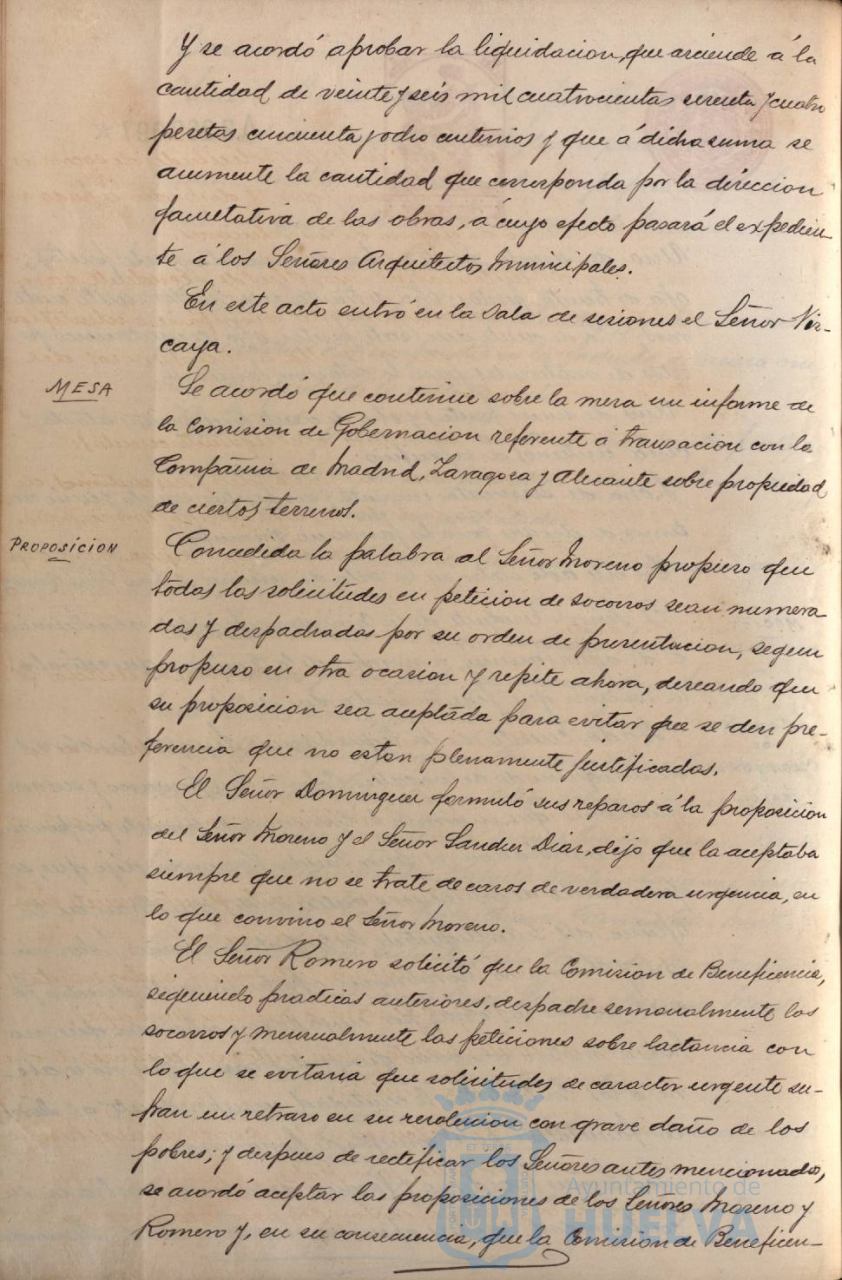 Y se acordó aprobar la liquidacion, que asciende á la
cantidad de veinte y seis mil cuatrocientas sesenta y cuatro
pesetas cincuenta y ocho centimos y que á dicha suma se
aumente la cantidad que corresponda por la direccion
facultativa de las obras, á cuyo efecto pasará el expedien
te á los Señores Arquitectos Municipales.
En este acto entró en la Sala de sesiones el Señor Viz-
caya.
MESA
Se acordó que continue sobre la mesa un informe de
la Comision de Gobernacion referente á transacion con la
Compañia de Madrid, Zaragoza y Alicante sobre propiedad
de ciertos terrenos.
PROPOSICION
Concedida la palabra al Señor Moreno propuso que
todas las solicitudes en peticion de socorros sean numera
das y despachadas por su orden de presentacion, segun
propuso en otra ocasion y repite ahora, deseando que
su proposicion sea aceptada para evitar que se den pre-
ferencia que no estan plenamente justificadas.
El Señor Dominguez formuló sus reparos á la proposicion
del Señor Moreno y el Señor Sanchez Diaz, dijo que la aceptaba
siempre que no se trate de casos de verdadera urgencia, en
lo que convino el Señor Moreno.
El Señor Romero solicitó que la Comision de Beneficencia,
siguiendo practicas anteriores, despache semanalmente los
socorros y mensualmente las peticiones sobre lactancia con
lo que se evitaria que solicitudes de caracter urgente su-
fran un retraso en su resolucion con grave daño de los
pobres; y despues de rectificar los Señores antes mencionados,
se acordó aceptar las proposiciones de los Señores Moreno y
Romero y, en su consecuencia, que la Comision de Beneficen-
Ayuntamiento de
HUELVA